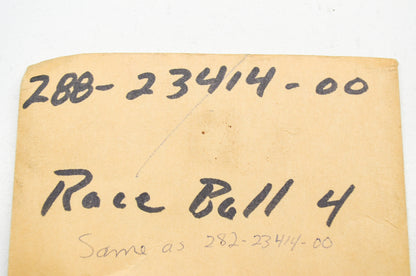 288-23414-00
Race Ball 4
Same as 282-23414-00